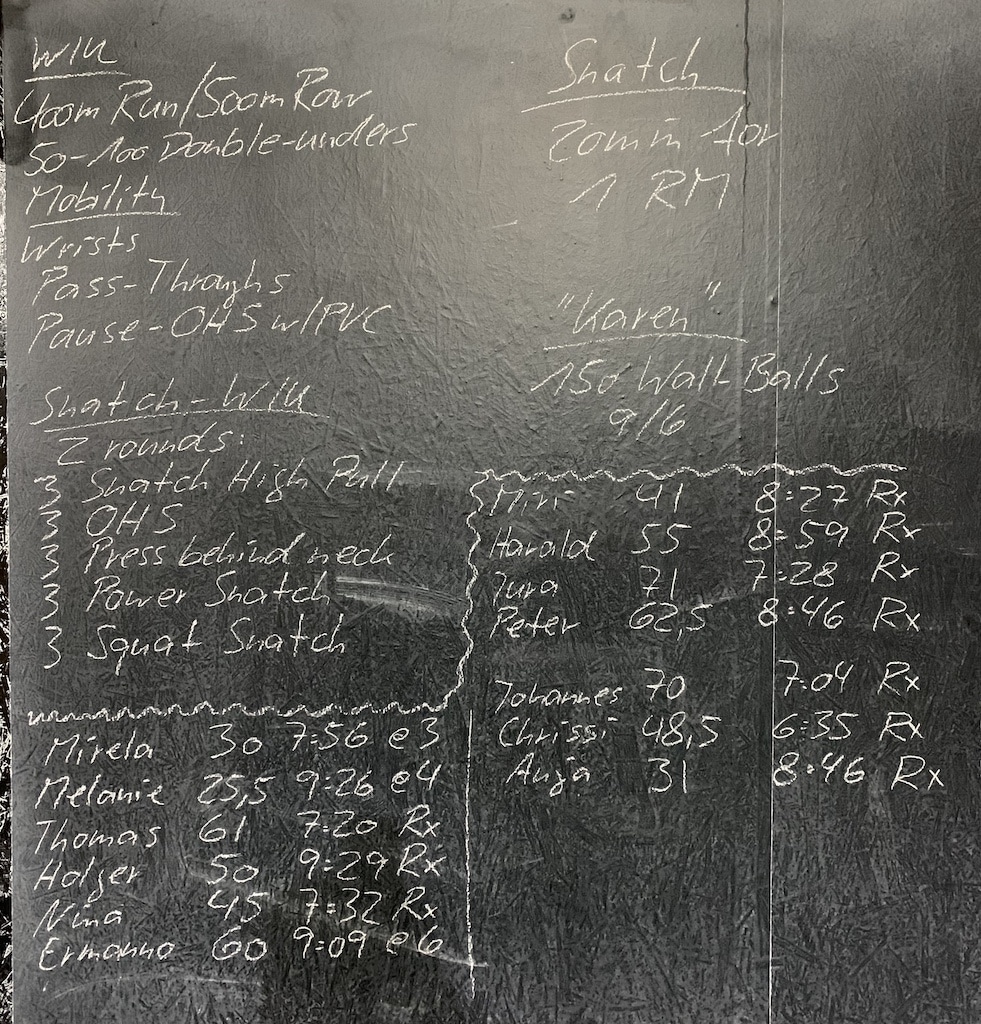 W/U
400m Run/500m Row
50-100 Double-unders
Mobility
Wrists
Pass-Throughs
Pause-OHS w/PVC
Snatch-W/U
2 rounds:
3 Snatch High Pull
3 OHS
3 Press behind neck
3 Power Snatch
3 Squat Snatch
Snatch
20min for
1 RM
"Karen"
150 Wall-Balls
9/6
Mirela 30 7:56 @3
Melanie 25,5 9:26 @4
Thomas 61 7:20 Rx
Holger 50 9:29 Rx
Nina 45 7:32 Rx
Ermanno 60 9:09 @6
Miri 41 8:27 Rx
Harald 55 8:59 Rx
Jura 71 7:28 Rx
Peter 62,5 8:46 Rx
Johannes 70 7:04 Rx
Chrissi 48,5 6:35 Rx
Anja 31 8:46 Rx